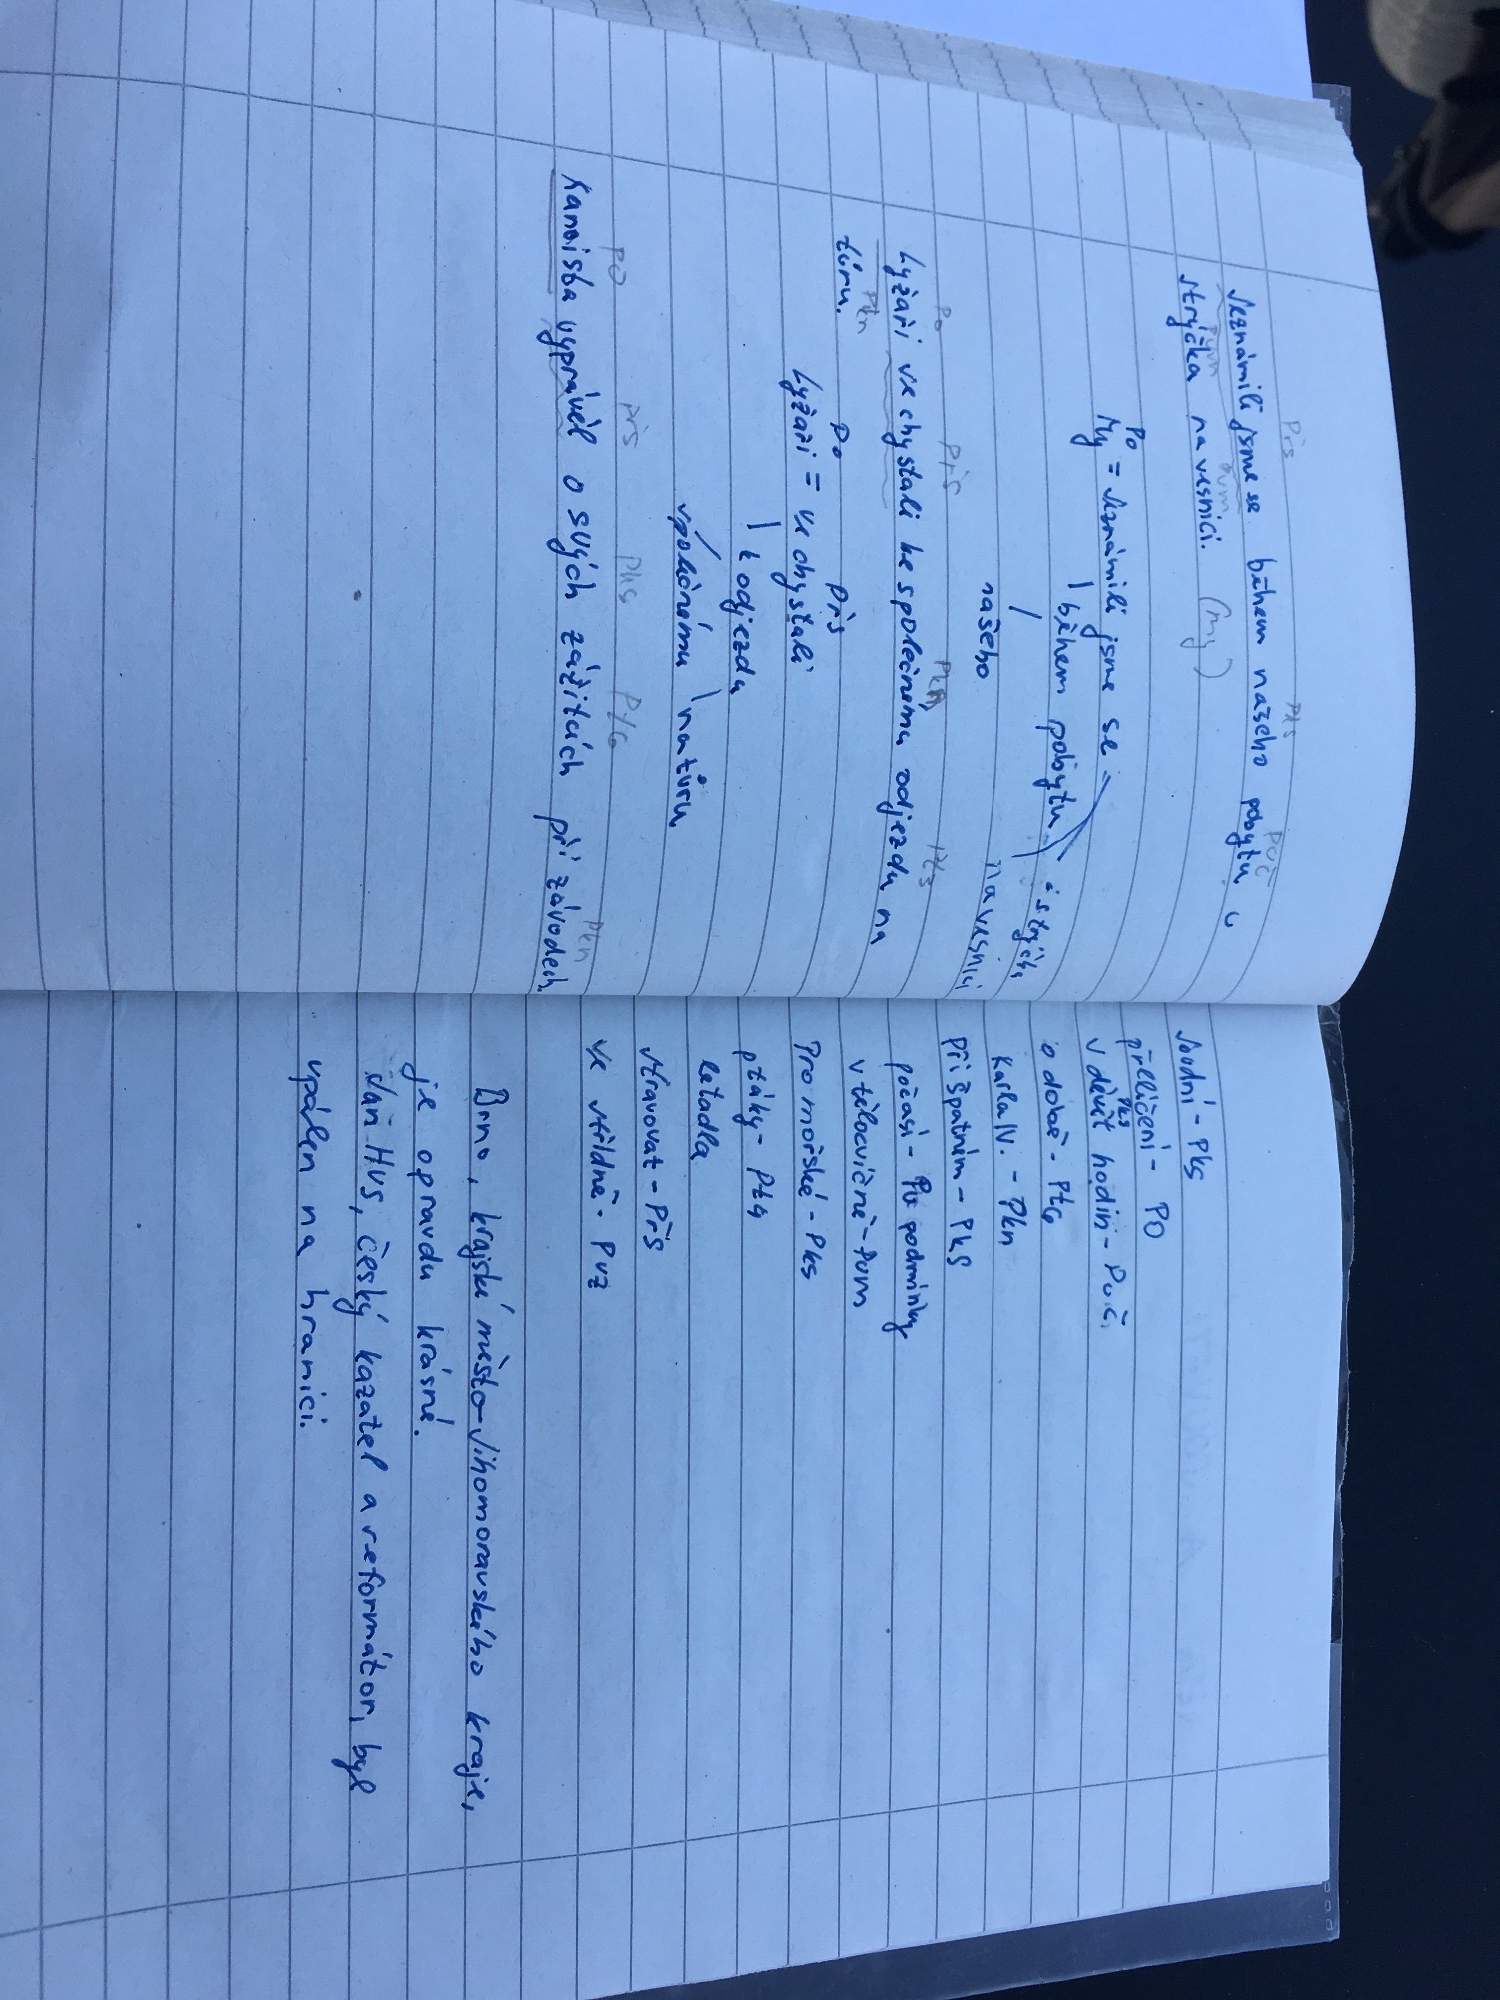 Přs Pks PUČ
Seznámili jsme se během našeho pobytu u
PUM
strýčka na vesnici. (My)
Po
My = seznámili jsme se
během pobytu
našeho na vesnici
Po Přs Pkn Pks
Lyžaři se chystali ke společnému odjezdu na
Pkn
túru.
Po Přs
Lyžaři = se chystali
k odjezdu
společnému na túru
PO Přs Pks Pkn
Kanoista vyprávěl o svých zážitcích při závodech.
Soudní - Pks
přelíčení - PO
Pks
v devět hodin - PUČ.
o době - Ptč
Karla IV. - Pkn
při špatném - PkS
počasí - Pu podmínky
v tělocvičně - PUM
Pro mořské - Pks
ptáky - Ptč
letadla
stravovat - Přs
ve střídně - PUZ
Brno, krajské město Jihomoravského kraje,
je opravdu krásné.
Jan Hus, český kazatel a reformátor, byl
upálen na hranici.